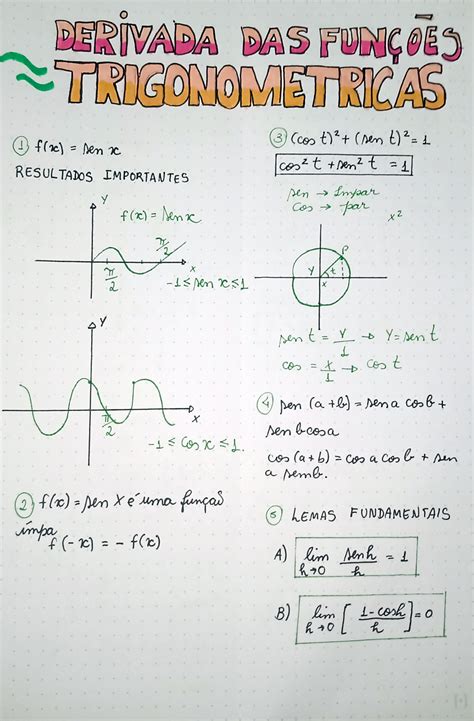 DERIVADA DAS FUNÇOẼS
TRIGONOMETRICAS
① f(x) = sen x
RESULTADOS IMPORTANTES
Y
f(x) = sen x
π/2
π/2
x
-1 ≤ sen x ≤ 1
Y
π/2
x
-1 ≤ cos x ≤ 1.
② f(x) = sen X é uma função
impa
f(-x) = - f(x)
③ (cos t)² + (sen t)² = 1
cos² t + sen² t = 1
sen → Impar
cos → par
x²
P
Y
t
x
sen t = Y/1 → Y = sen t
cos = x/1 → cos t
④ sen (a+b) = sen a cos b +
sen b cos a
cos (a+b) = cos a cos b + sen
a sem b.
⑤ LEMAS FUNDAMENTAIS
A) lim h→0 sen h/h = 1
B) lim h→0 [1-cosh/h] = 0